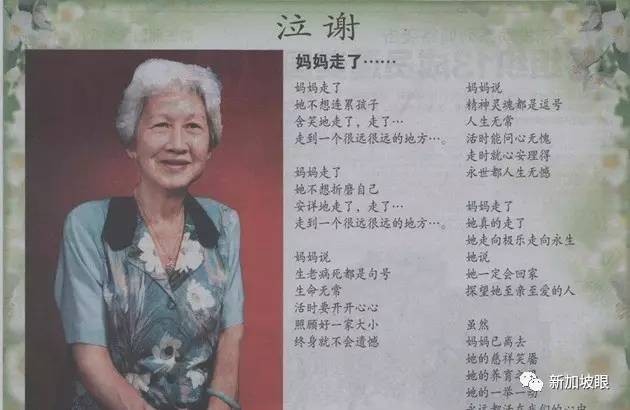 泣谢
妈妈走了……
妈妈走了
她不想连累孩子
含笑地走了，走了…
走到一个很远很远的地方…。
妈妈走了
她不想折磨自己
安详地走了，走了…
走到一个很远很远的地方…。
妈妈说
生老病死都是句号
生命无常
活时要开开心心
照顾好一家大小
终身就不会遗憾
妈妈说
精神灵魂都是逗号
人生无常
活时能问心无愧
走时就心安理得
永世都人生无憾
妈妈走了
她真的走了
她走向极乐走向永生
她说
她一定会回家
探望她至亲至爱的人
虽然
妈妈已离去
她的慈祥笑靥
她的养育
她的一举一
新加坡眼